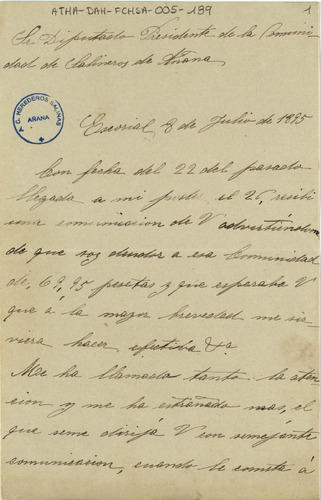 ATHA-DAH-FCHSA-005-189
1
Sr Diputado Presidente de la Comuni
dad de Salineros de Añana.
P. C. HEREDEROS SALINAS
AÑANA
Escorial 8 de Julio de 1895
Con fecha del 22 del pasado
llegada a mi poder el 26, recibi
una comunicacion de V advirtiéndome
de que soy deudor a esa Comunidad
de, 69,95 pesetas y que esperaba V
que á la mayor brevedad me sir
viera hacer efectiba &.a
Me ha llamado tanto la aten
cion y me ha extrañado mas, el
que seme dirija V con semejante
comunicacion, cuando le consta á